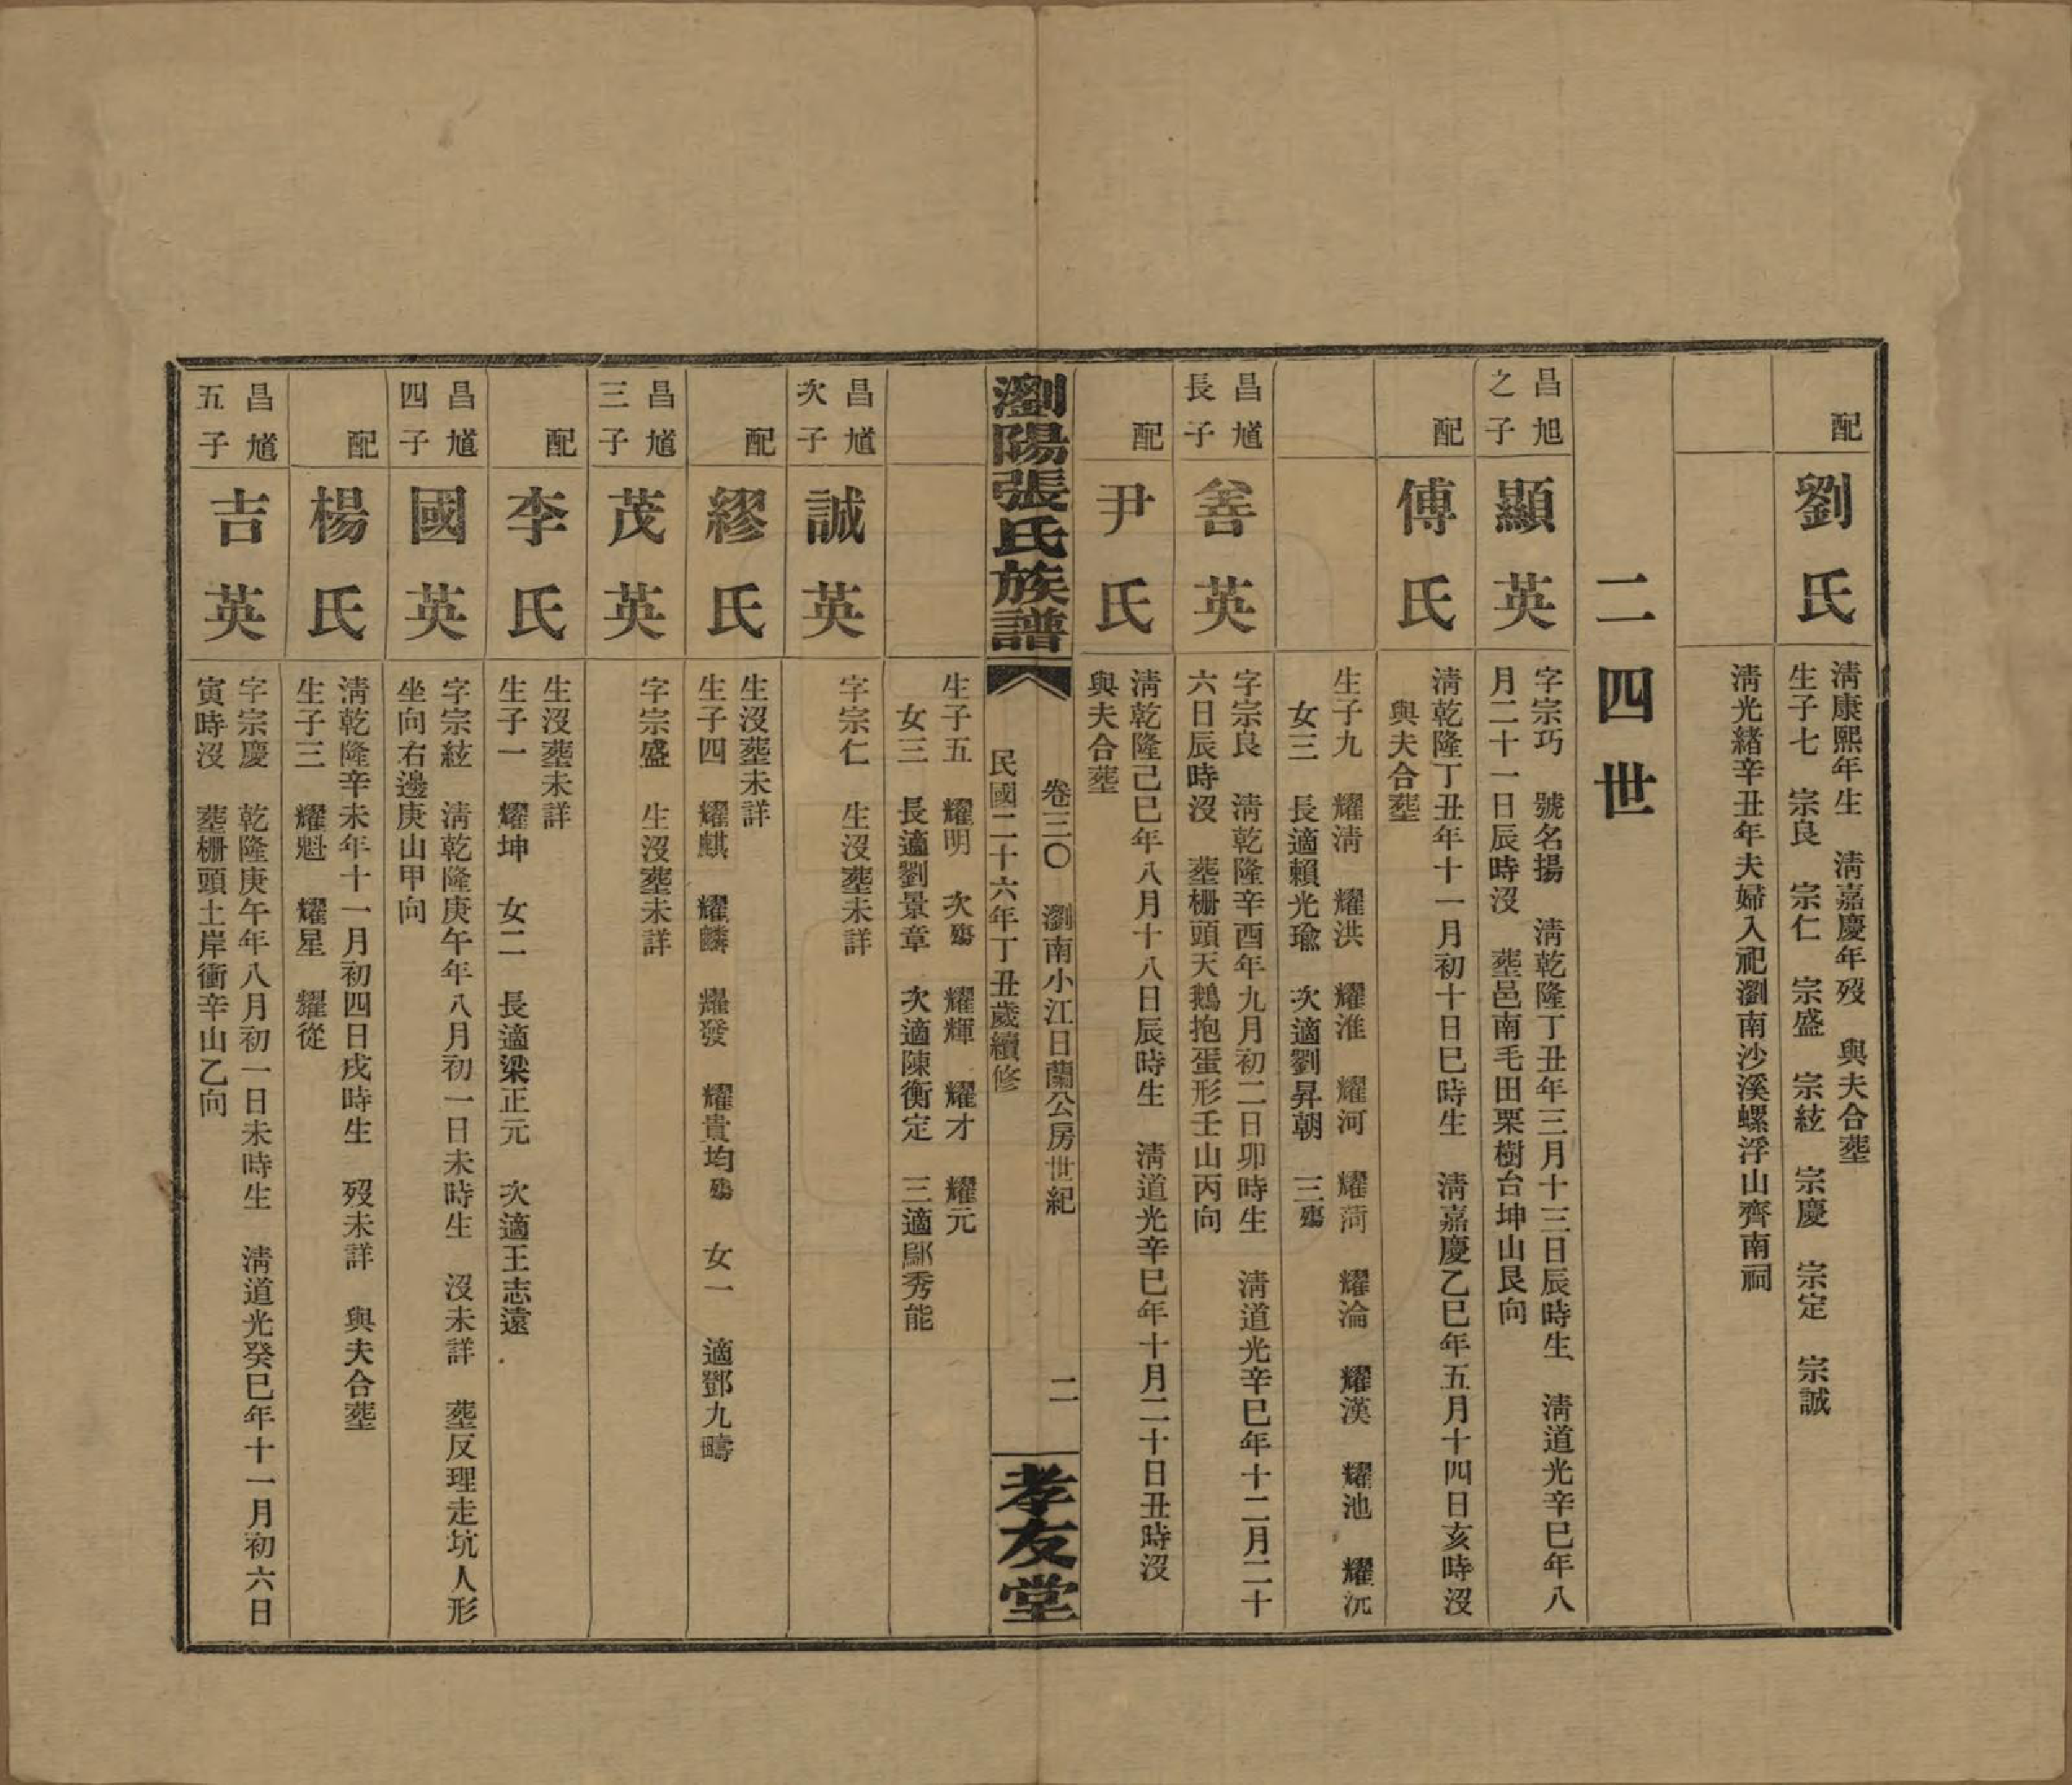 配
劉氏
淸康熙年生 淸嘉慶年歿 與夫合塟
生子七 宗良 宗仁 宗盛 宗絃 宗慶 宗定 宗誠
淸光緒辛丑年夫婦入祀瀏南沙溪螺浮山齊南祠
二四世
昌旭
之子
顯英
字宗巧 號名揚 淸乾隆丁丑年三月十三日辰時生 淸道光辛巳年八
月二十一日辰時沒 塟邑南毛田栗樹台坤山艮向
配
傅氏
淸乾隆丁丑年十一月初十日巳時生 淸嘉慶乙巳年五月十四日亥時沒
與夫合塟
生子九 耀淸 耀洪 耀淮 耀河 耀菏 耀淪 耀漢 耀池 耀沅
女三 長適賴光瑜 次適劉昇朝 三殤
昌馗
長子
善英
字宗良 淸乾隆辛酉年九月初二日卯時生 淸道光辛巳年十二月二十
六日辰時沒 塟栅頭天鵝抱蛋形壬山丙向
配
尹氏
淸乾隆己巳年八月十八日辰時生 淸道光辛巳年十月二十日丑時沒
與夫合塟
瀏陽張氏族譜
卷三〇 瀏南小江日蘭公房世紀 二
民國二十六年丁丑歲續修
孝友堂
生子五 耀明 次殤 耀輝 耀才 耀元
女三 長適劉景章 次適陳衡定 三適鄔秀能
昌馗
次子
誠英
字宗仁 生沒塟未詳
配
繆氏
生沒塟未詳
生子四 耀麒 耀麟 耀發 耀貴均殤 女一 適鄧九疇
昌馗
三子
茂英
字宗盛 生沒塟未詳
配
李氏
生沒塟未詳
生子一 耀坤 女二 長適梁正元 次適王志遠
昌馗
四子
國英
字宗絃 淸乾隆庚午年八月初一日未時生 沒未詳 塟反理走坑人形
坐向右邊庚山甲向
配
楊氏
淸乾隆辛未年十一月初四日戌時生 歿未詳 與夫合塟
生子三 耀魁 耀星 耀從
昌馗
五子
吉英
字宗慶 乾隆庚午年八月初一日未時生 淸道光癸巳年十一月初六日
寅時沒 塟栅頭土岸衝辛山乙向